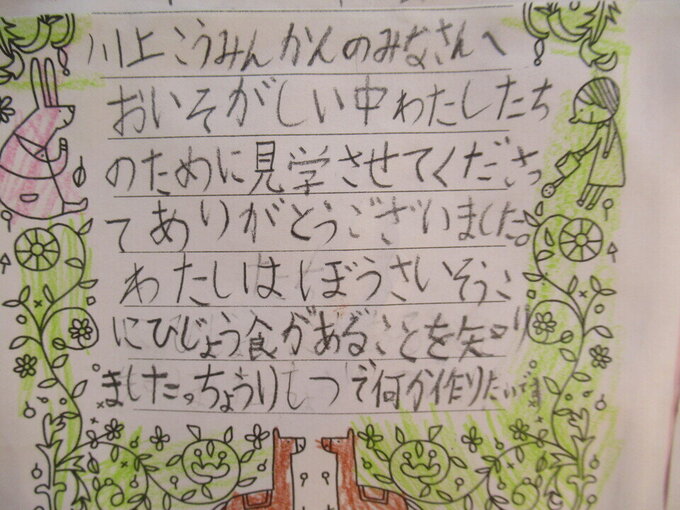 川上こうみんかんのみなさんへ
おいそがしい中わたしたち
のために見学させてくださっ
てありがとうございました。
わたしは、ぼうさいそうこ
にひじょう食があることを知り
ました。ちょうりしつで何か作りたいです。